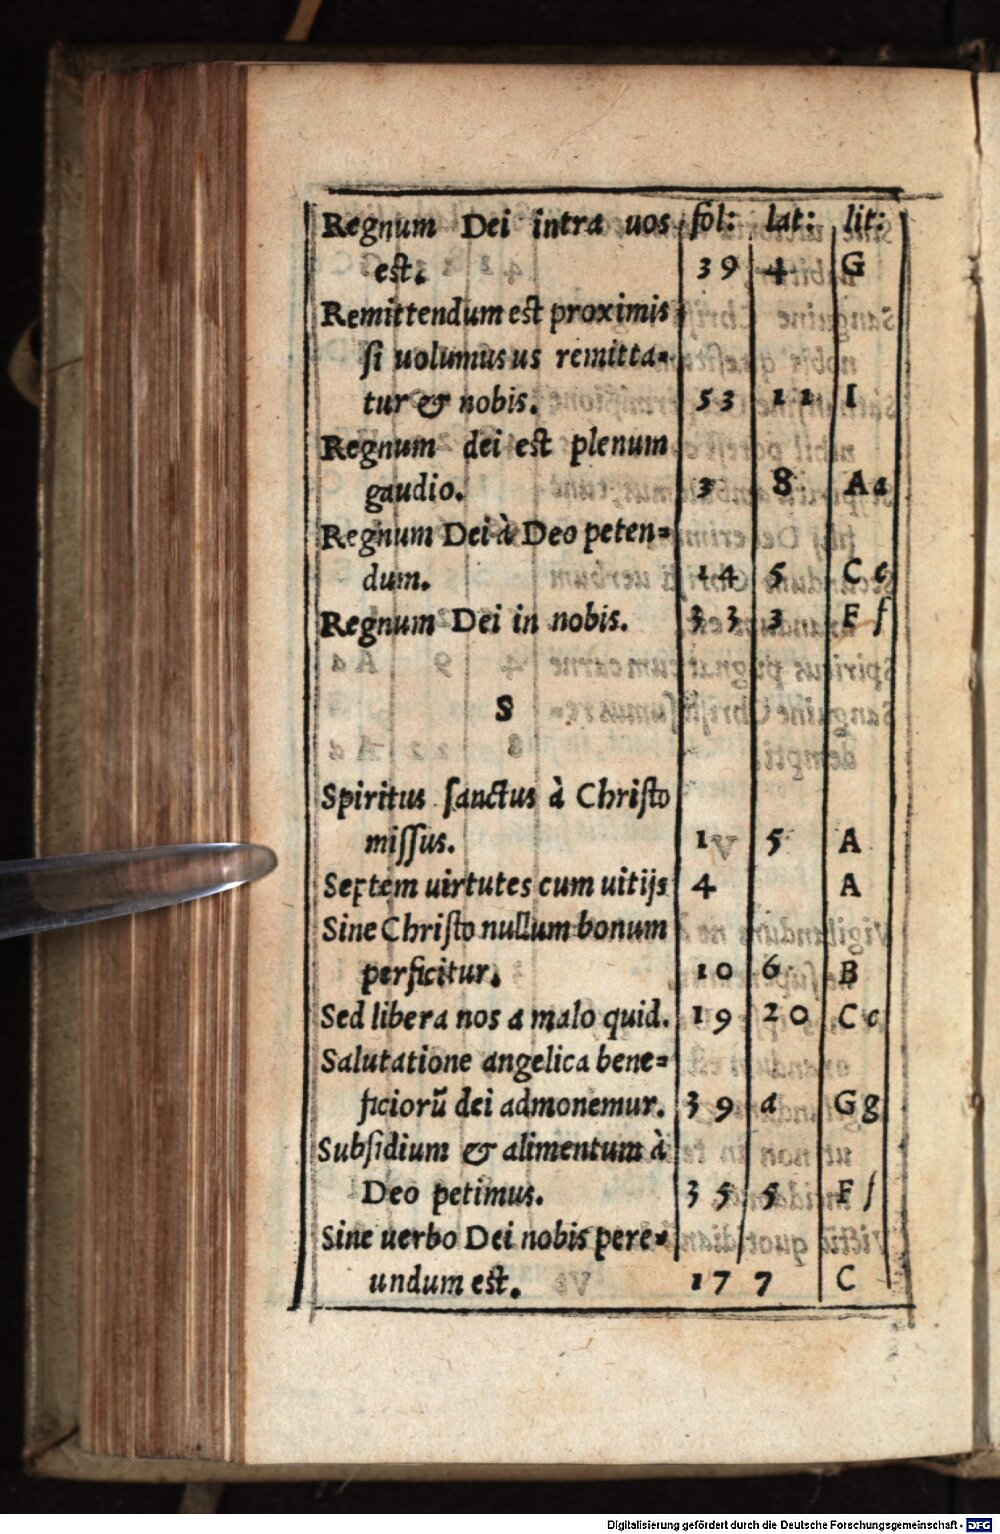 Regnum Dei intra uos fol: lat: lit:
est. 39 4 G
Remittendum est proximis
si uolumus us remitta=
tur & nobis. 53 11 I
Regnum dei est plenum
gaudio. 3 8 Aa
Regnum Dei à Deo peten=
dum. 14 5 Cc
Regnum Dei in nobis. 33 3 Ff
S
Spiritus sanctus à Christo
missus. 1 5 A
Septem uirtutes cum uitijs 4 A
Sine Christo nullum bonum
perficitur. 10 6 B
Sed libera nos a malo quid. 19 20 Cc
Salutatione angelica bene=
ficiorũ dei admonemur. 39 4 Gg
Subsidium & alimentum à
Deo petimus. 35 5 Ff
Sine uerbo Dei nobis pere=
undum est. 17 7 C
Digitalisierung gefördert durch die Deutsche Forschungsgemeinschaft - DFG